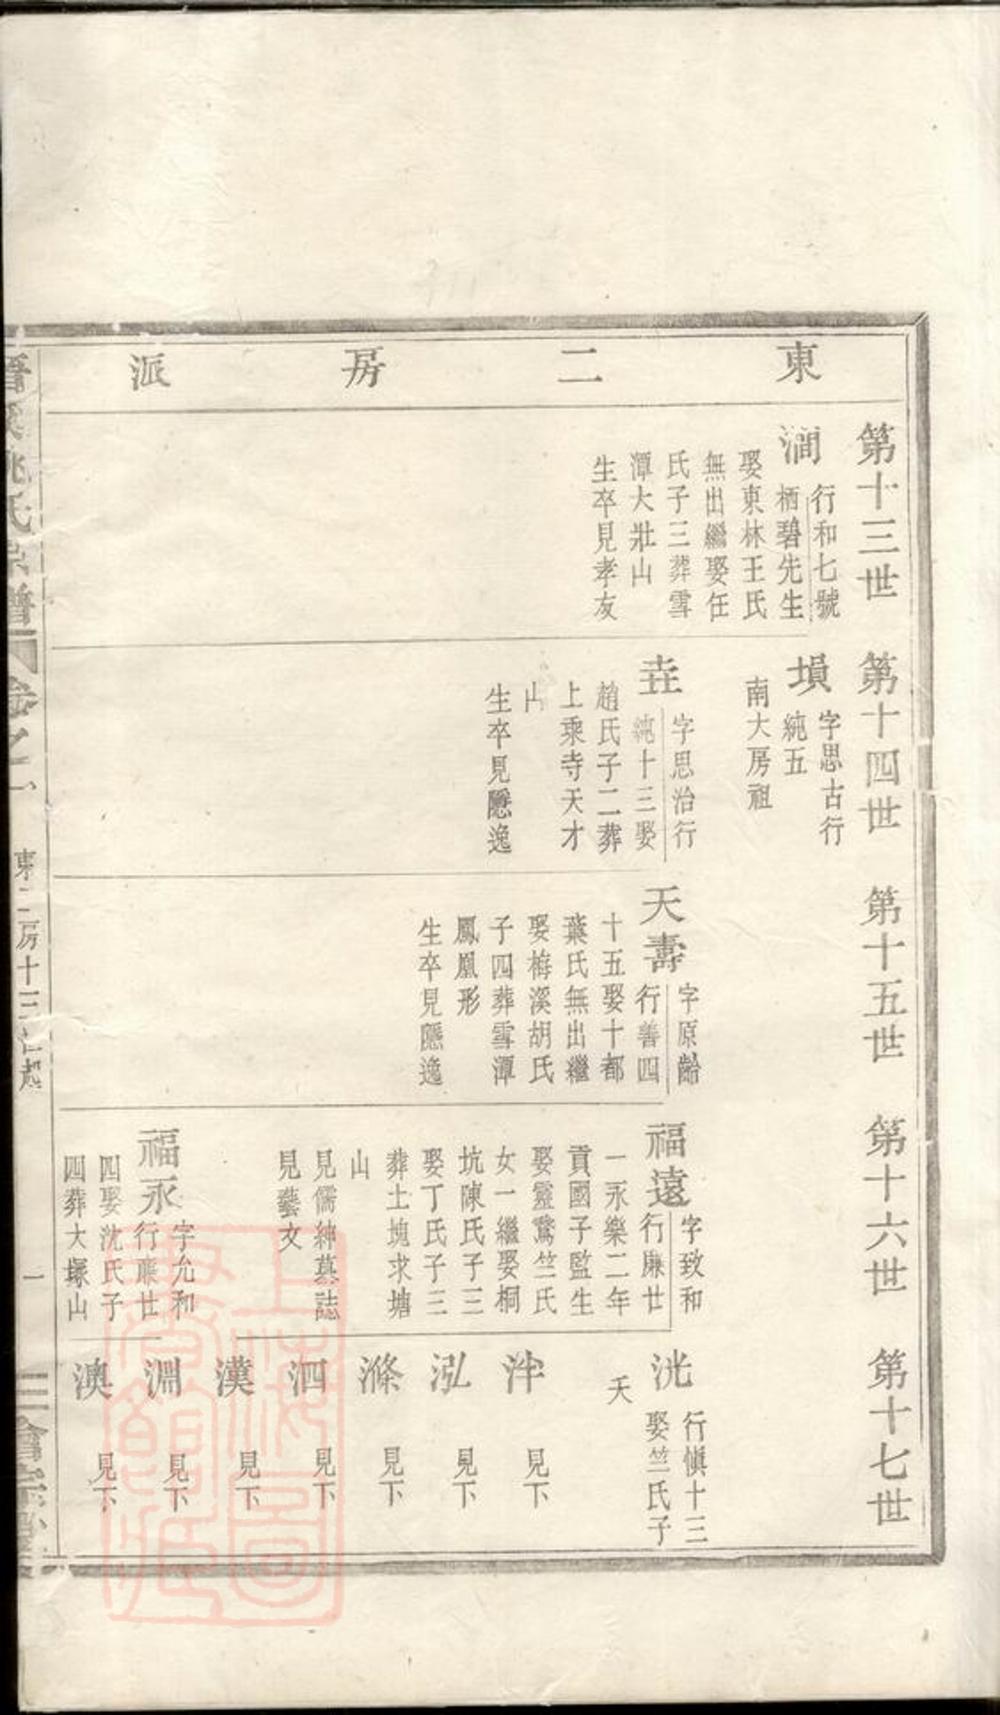 東二房派
第十三世
澗
行和七號
栖碧先生
娶東林王氏
無出繼娶任
氏子三葬雪
潭大壯山
生卒見孝友
第十四世
塤
字思古行
純五
南大房祖
垚
字思治行
純十三娶
趙氏子二葬
上乘寺天才
山
生卒見隱逸
第十五世
天壽
字原齡
行善四
十五娶十都
葉氏無出繼
娶梅溪胡氏
子四葬雪潭
鳳凰形
生卒見隱逸
第十六世
福遠
字致和
行廉廿
一永樂二年
貢國子監生
娶靈鷲竺氏
女一繼娶桐
坑陳氏子三
娶丁氏子三
葬土塊求塘
山
見儒紳墓誌
見藝文
福永
字允和
行廉廿
四娶沈氏子
四葬大塚山
第十七世
洸
行愼十三
娶竺氏子
夭
泮 見下
泓 見下
滌 見下
泗 見下
漢 見下
淵 見下
澳 見下
氏宗譜
卷之一
東二房十三世起
一